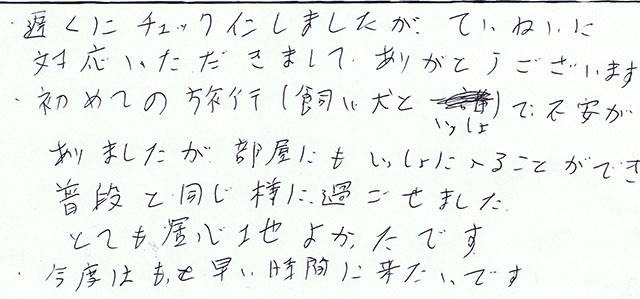 ・遅くにチェックインしましたが、ていねいに
対応いただきまして、ありがとうございます
・初めての旅行(飼い犬といっしょ)で不安が
ありましたが部屋にもいっしょに入ることができ
普段と同じ様に過ごせました。
とても居心地よかったです
・今度はもっと早い時間に来たいです